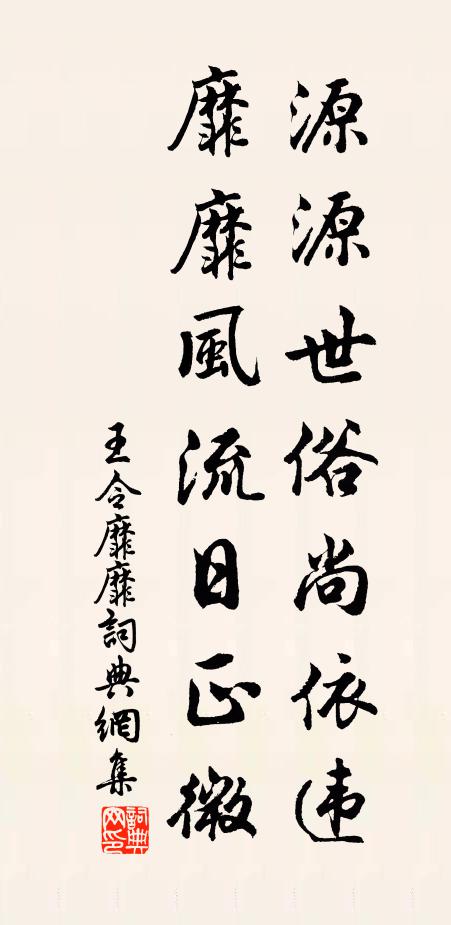 源源世俗尚依违
靡靡風流日正微
王令靡靡詞典網集
詞典网印